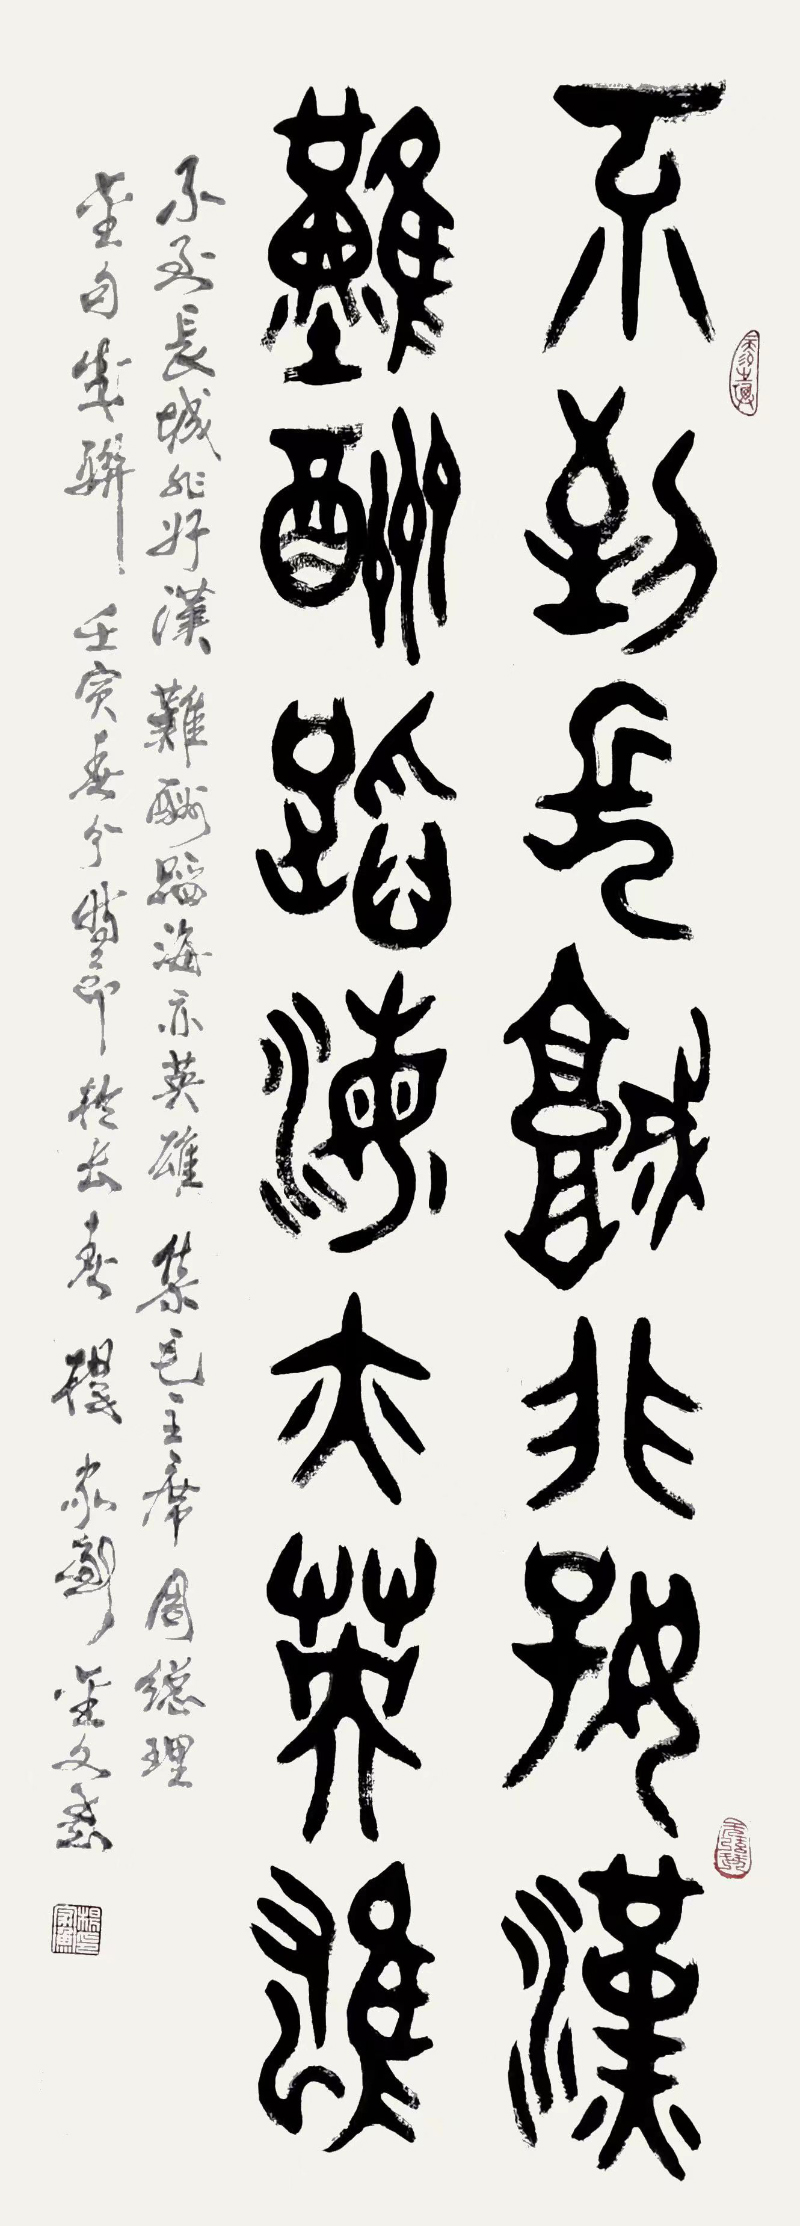 不到長城非好漢
難酬蹈海亦英雄
不到長城非好漢 難酬蹈海亦英雄 集毛主席 周總理
金句成聯 壬寅春分時節 於長春 楊家 金文系